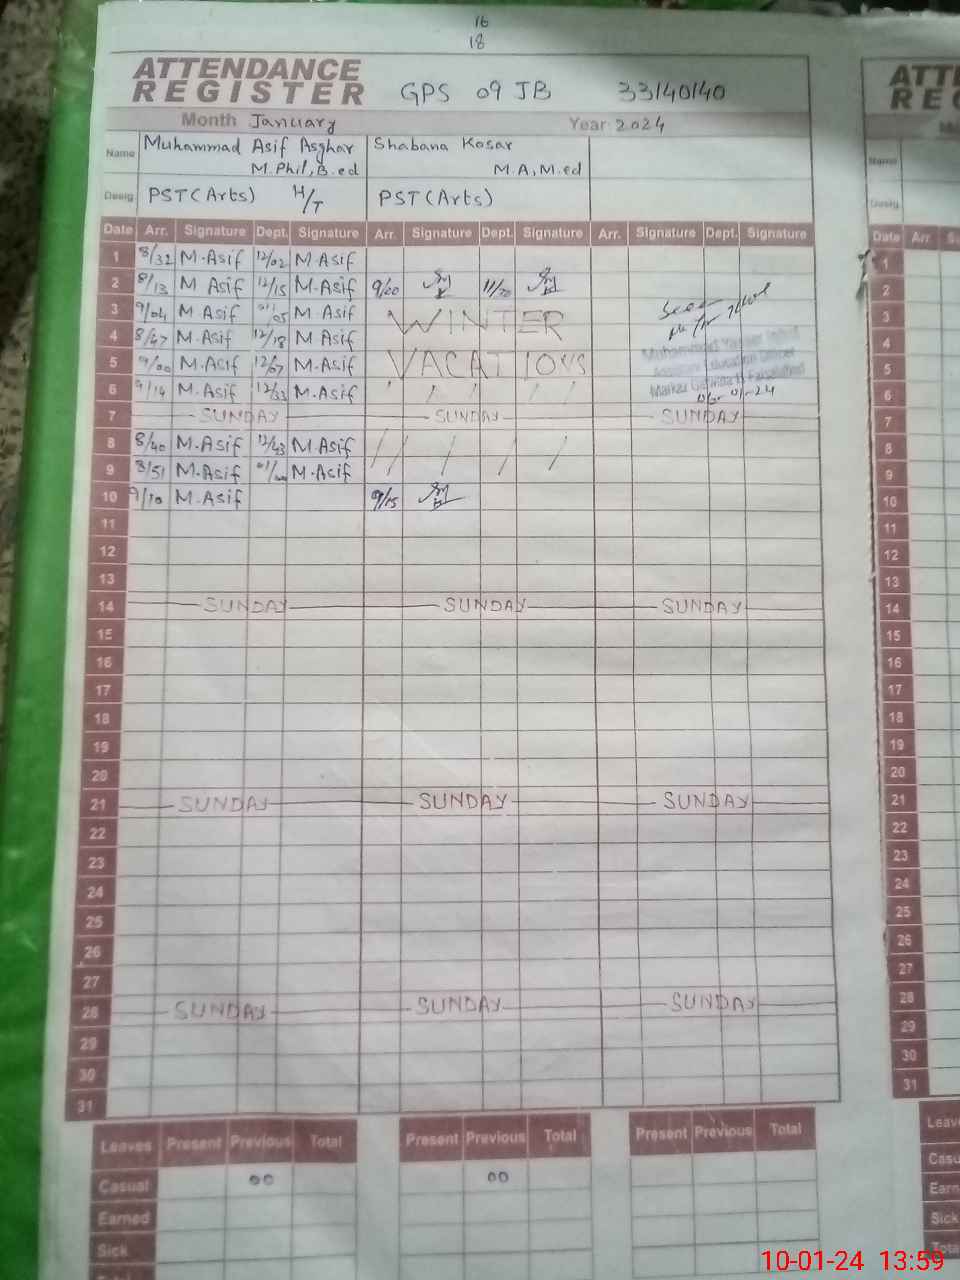 16
18
ATTENDANCE
REGISTER GPS 09 JB 33140140
Month January Year 2024
Name Muhammad Asif Asghar Shabana Kosar
M.Phil, B.ed M.A, M.ed
Desig PST (Arts) H/T PST (Arts)
Date Arr. Signature Dept. Signature Arr. Signature Dept. Signature Arr. Signature Dept. Signature
1 8/32 M.Asif 12/02 M.Asif
2 8/13 M Asif 12/15 M.Asif 9/00
3 9/04 M.Asif 01/05 M.Asif WINTER
4 8/47 M.Asif 12/18 M.Asif
5 9/00 M.Asif 12/07 M.Asif VACATIONS
6 9/14 M.Asif 12/33 M.Asif
7 SUNDAY SUNDAY SUNDAY
8 8/40 M.Asif 12/43 M.Asif
9 8/51 M.Asif M.Asif
10 9/10 M.Asif 9/15
11
12
13
14 SUNDAY SUNDAY SUNDAY
15
16
17
18
19
20
21 SUNDAY SUNDAY SUNDAY
22
23
24
25
26
27
28 SUNDAY SUNDAY SUNDAY
29
30
31
Leaves Present Previous Total Present Previous Total Present Previous Total
Casual 00 00
Earned
Sick
Seen
Assistant Education Officer
ATT
RE
Name
Desig.
Date Arr
1
2
3
4
5
6
7
8
9
10
11
12
13
14
15
16
17
18
19
20
21
22
23
24
25
26
27
28
29
30
31
Leav
Casu
Earn
Sick
Tota
10-01-24 13:59